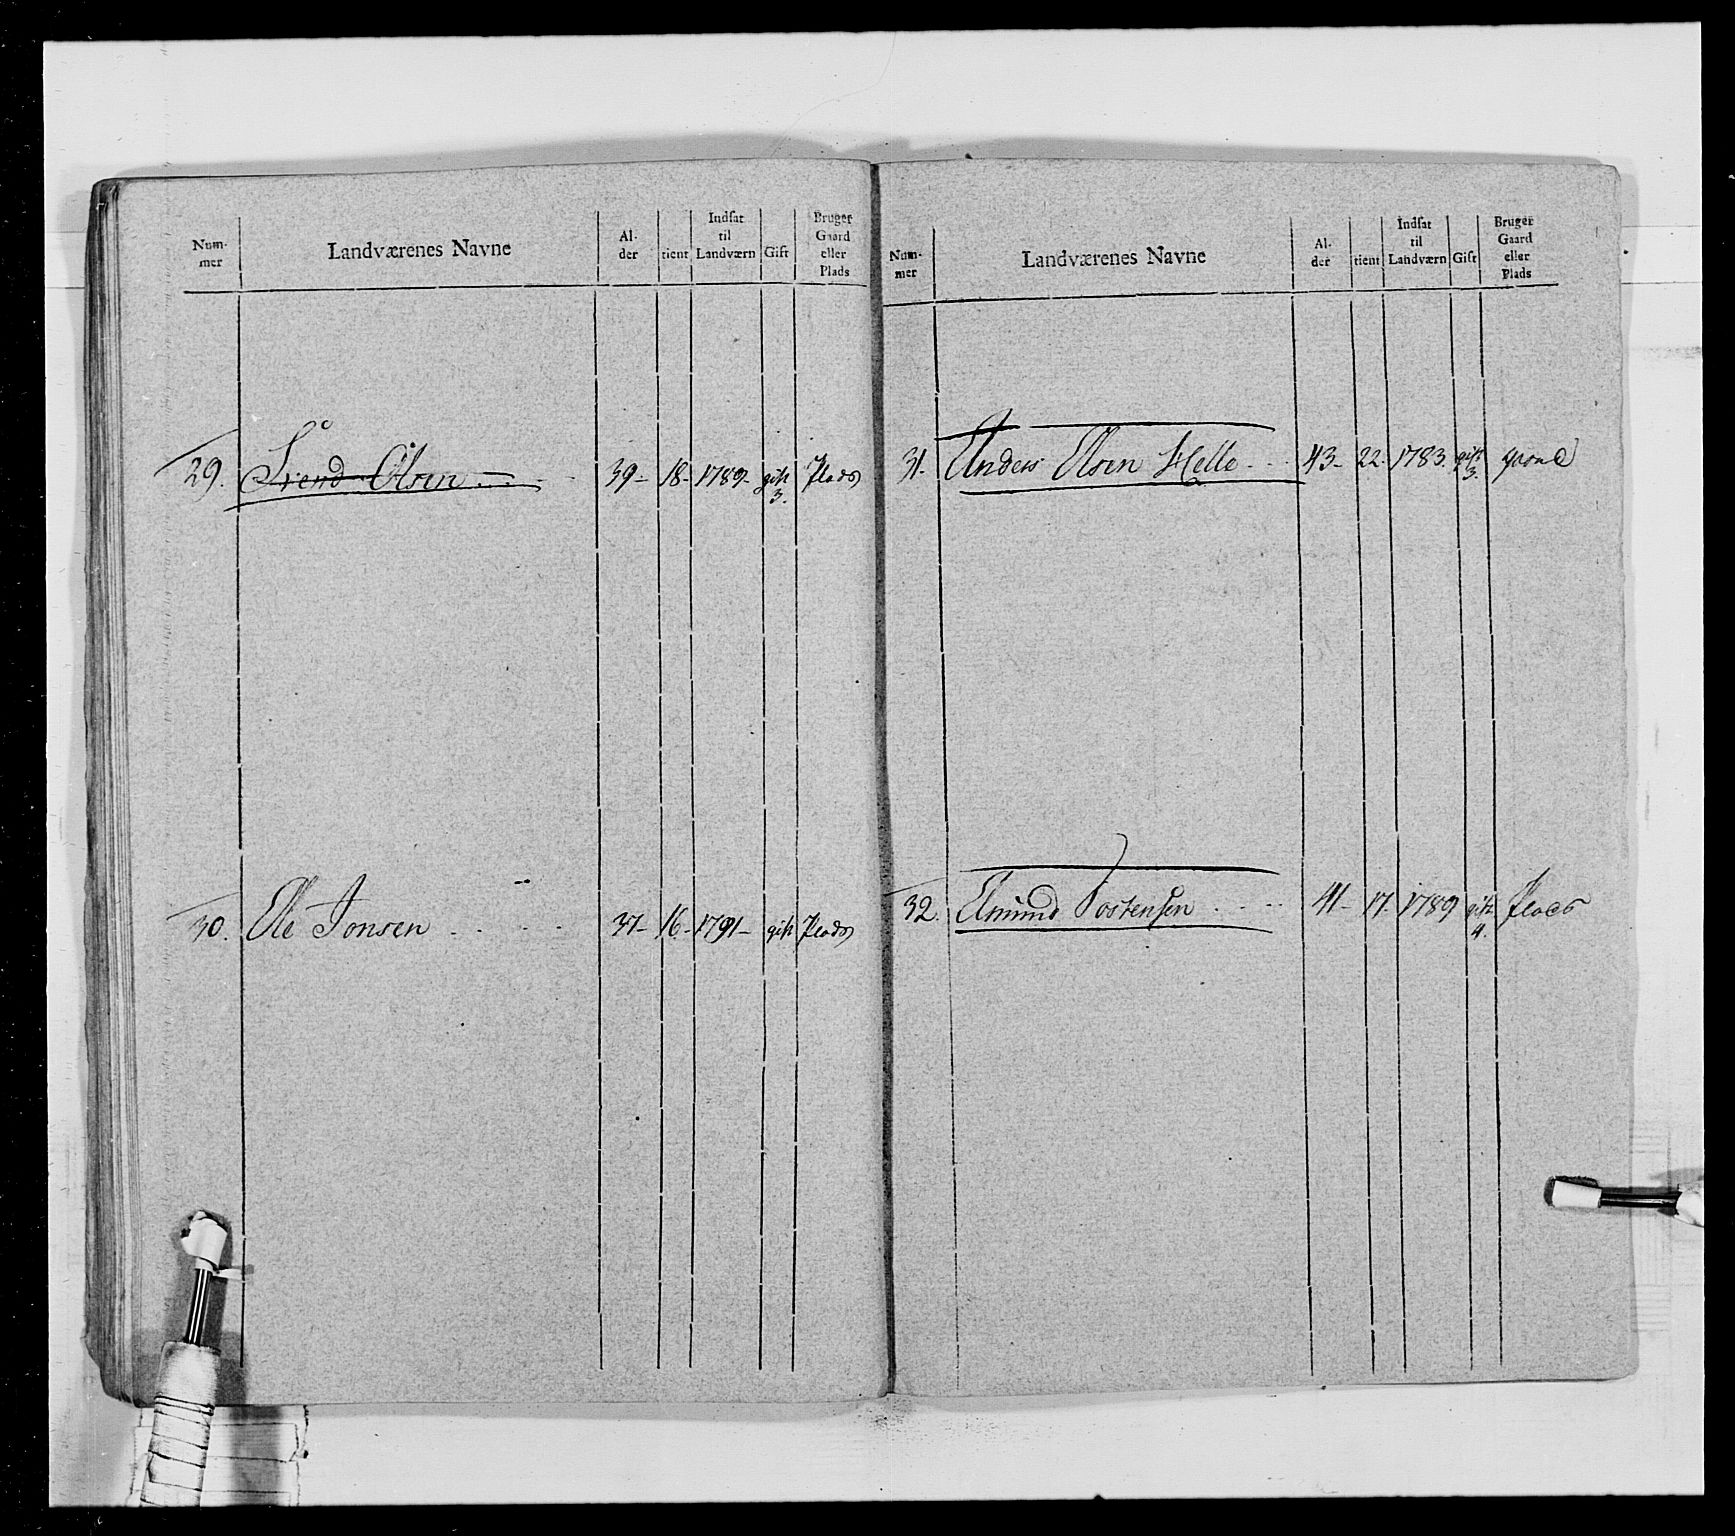 Num-
mer
Landværenes Navne
Al-
der
tient
Indsat
til
Landværn
Gift
Bruger
Gaard
eller
Plads
29. Svend Olsen 39 - 18 - 1789 - gift Plads
3.
30. Ole Jonsen 37 - 16 - 1791 - gift Plads
Num-
mer
Landværenes Navne
Al-
der
tient
Indsat
til
Landværn
Gift
Bruger
Gaard
eller
Plads
31. Anders Olsen Helle 43 - 22. 1783. gift gaard
3.
32. Amund Tostensen 41 - 17. 1789 gift plads
4.